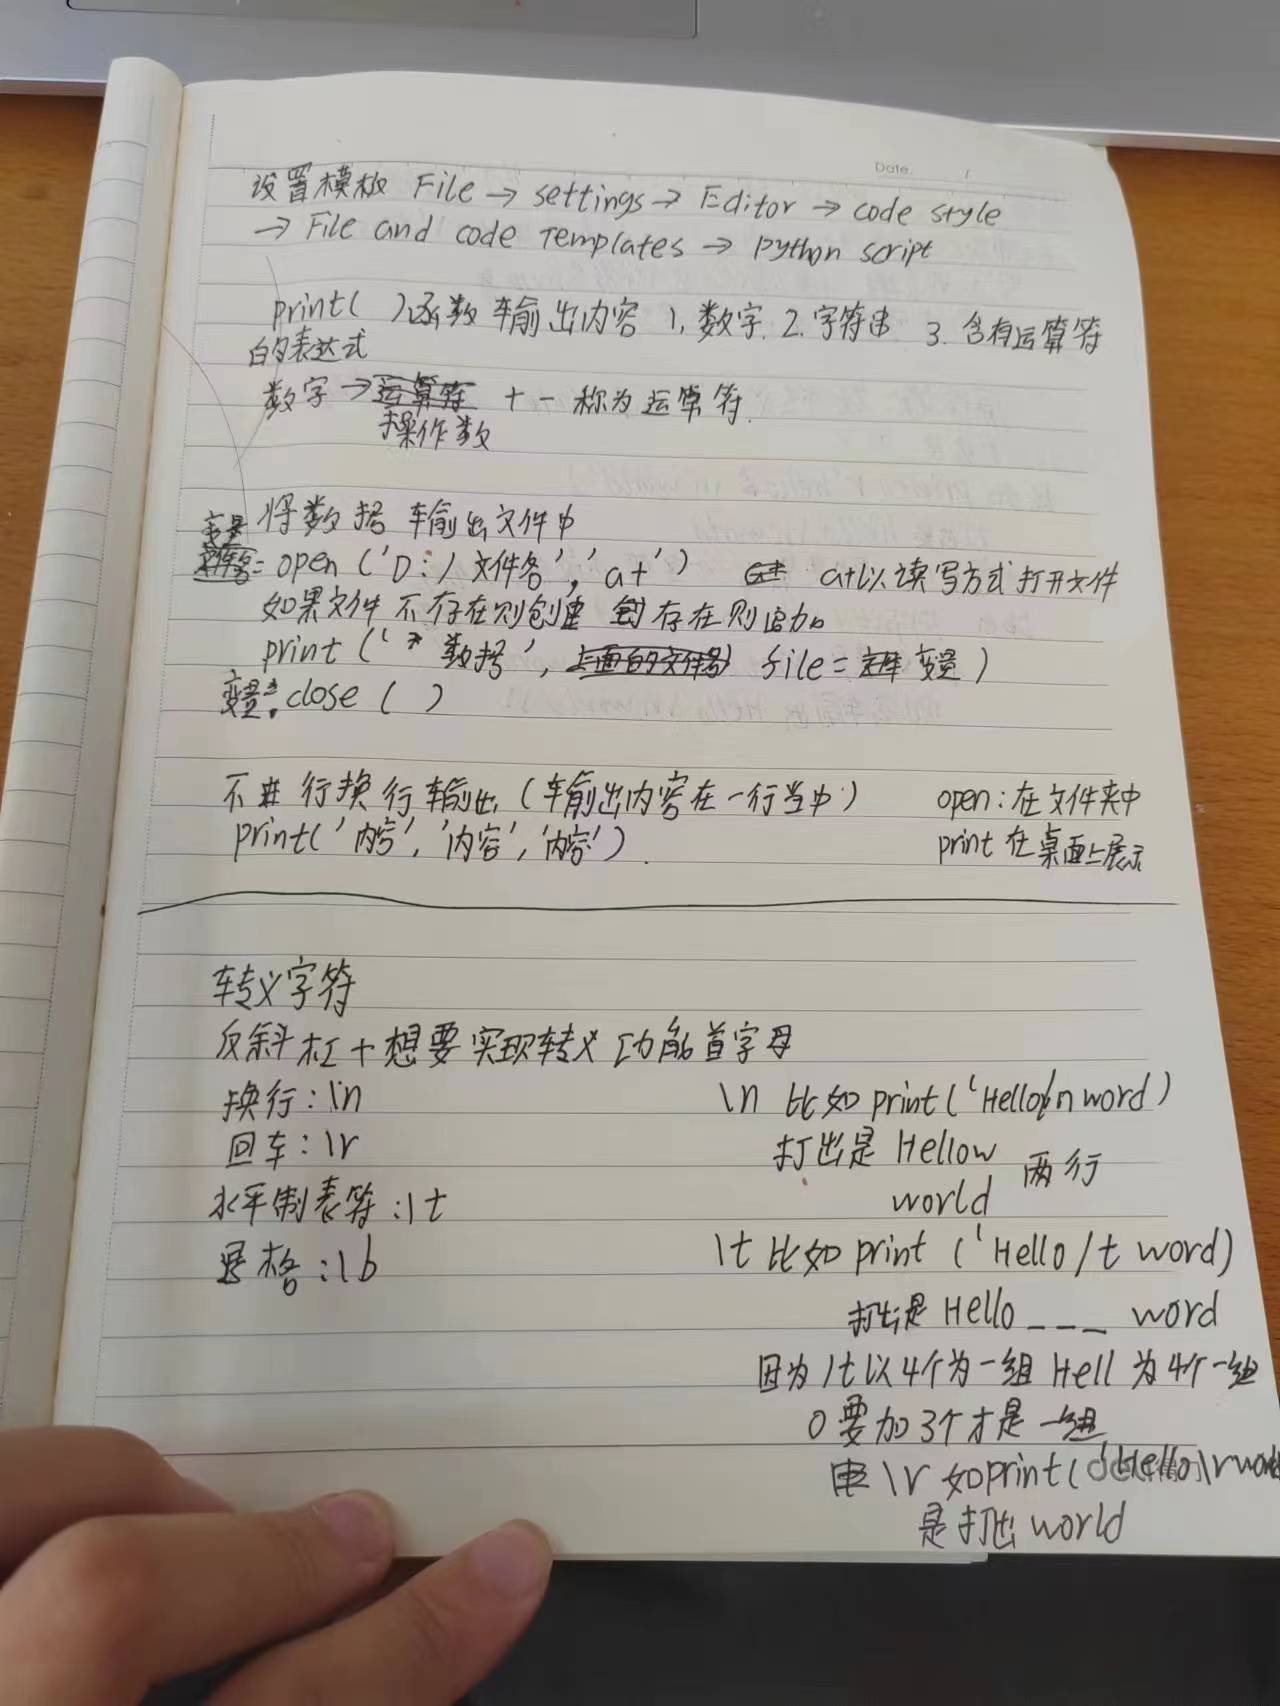 Date
设置模板 File → settings → Editor → code style
→ File and code Templates → python script
print( )函数 输出内容 1,数字. 2.字符串 3.含有运算符
的表达式
数字 → 运算符 + - 称为运算符.
操作数
将数据 输出文件中
变量
文件名= open ('D:/文件名','a+') a+以读写方式打开文件
如果文件不存在则创建 存在则追加。
print (' 数据', 上面的文件名 file= 变量)
变量.close ( )
不进行换行输出(输出内容在一行当中) open:在文件夹中
print('内容','内容','内容'). print 在桌面上展示
转义字符
反斜杠+想要实现转义功能首字母
换行:\n \n 比如 print('Hello\n word)
回车:\r 打出是 Hellow 两行
水平制表符:\t world
退格:\b \t 比如 print ('Hello/t word)
打出是 Hello _ _ _ word
因为/t以4个为一组 Hell 为4个一组
O要加3个才是一组
\r 如print('Hello\rworld
是打出 world